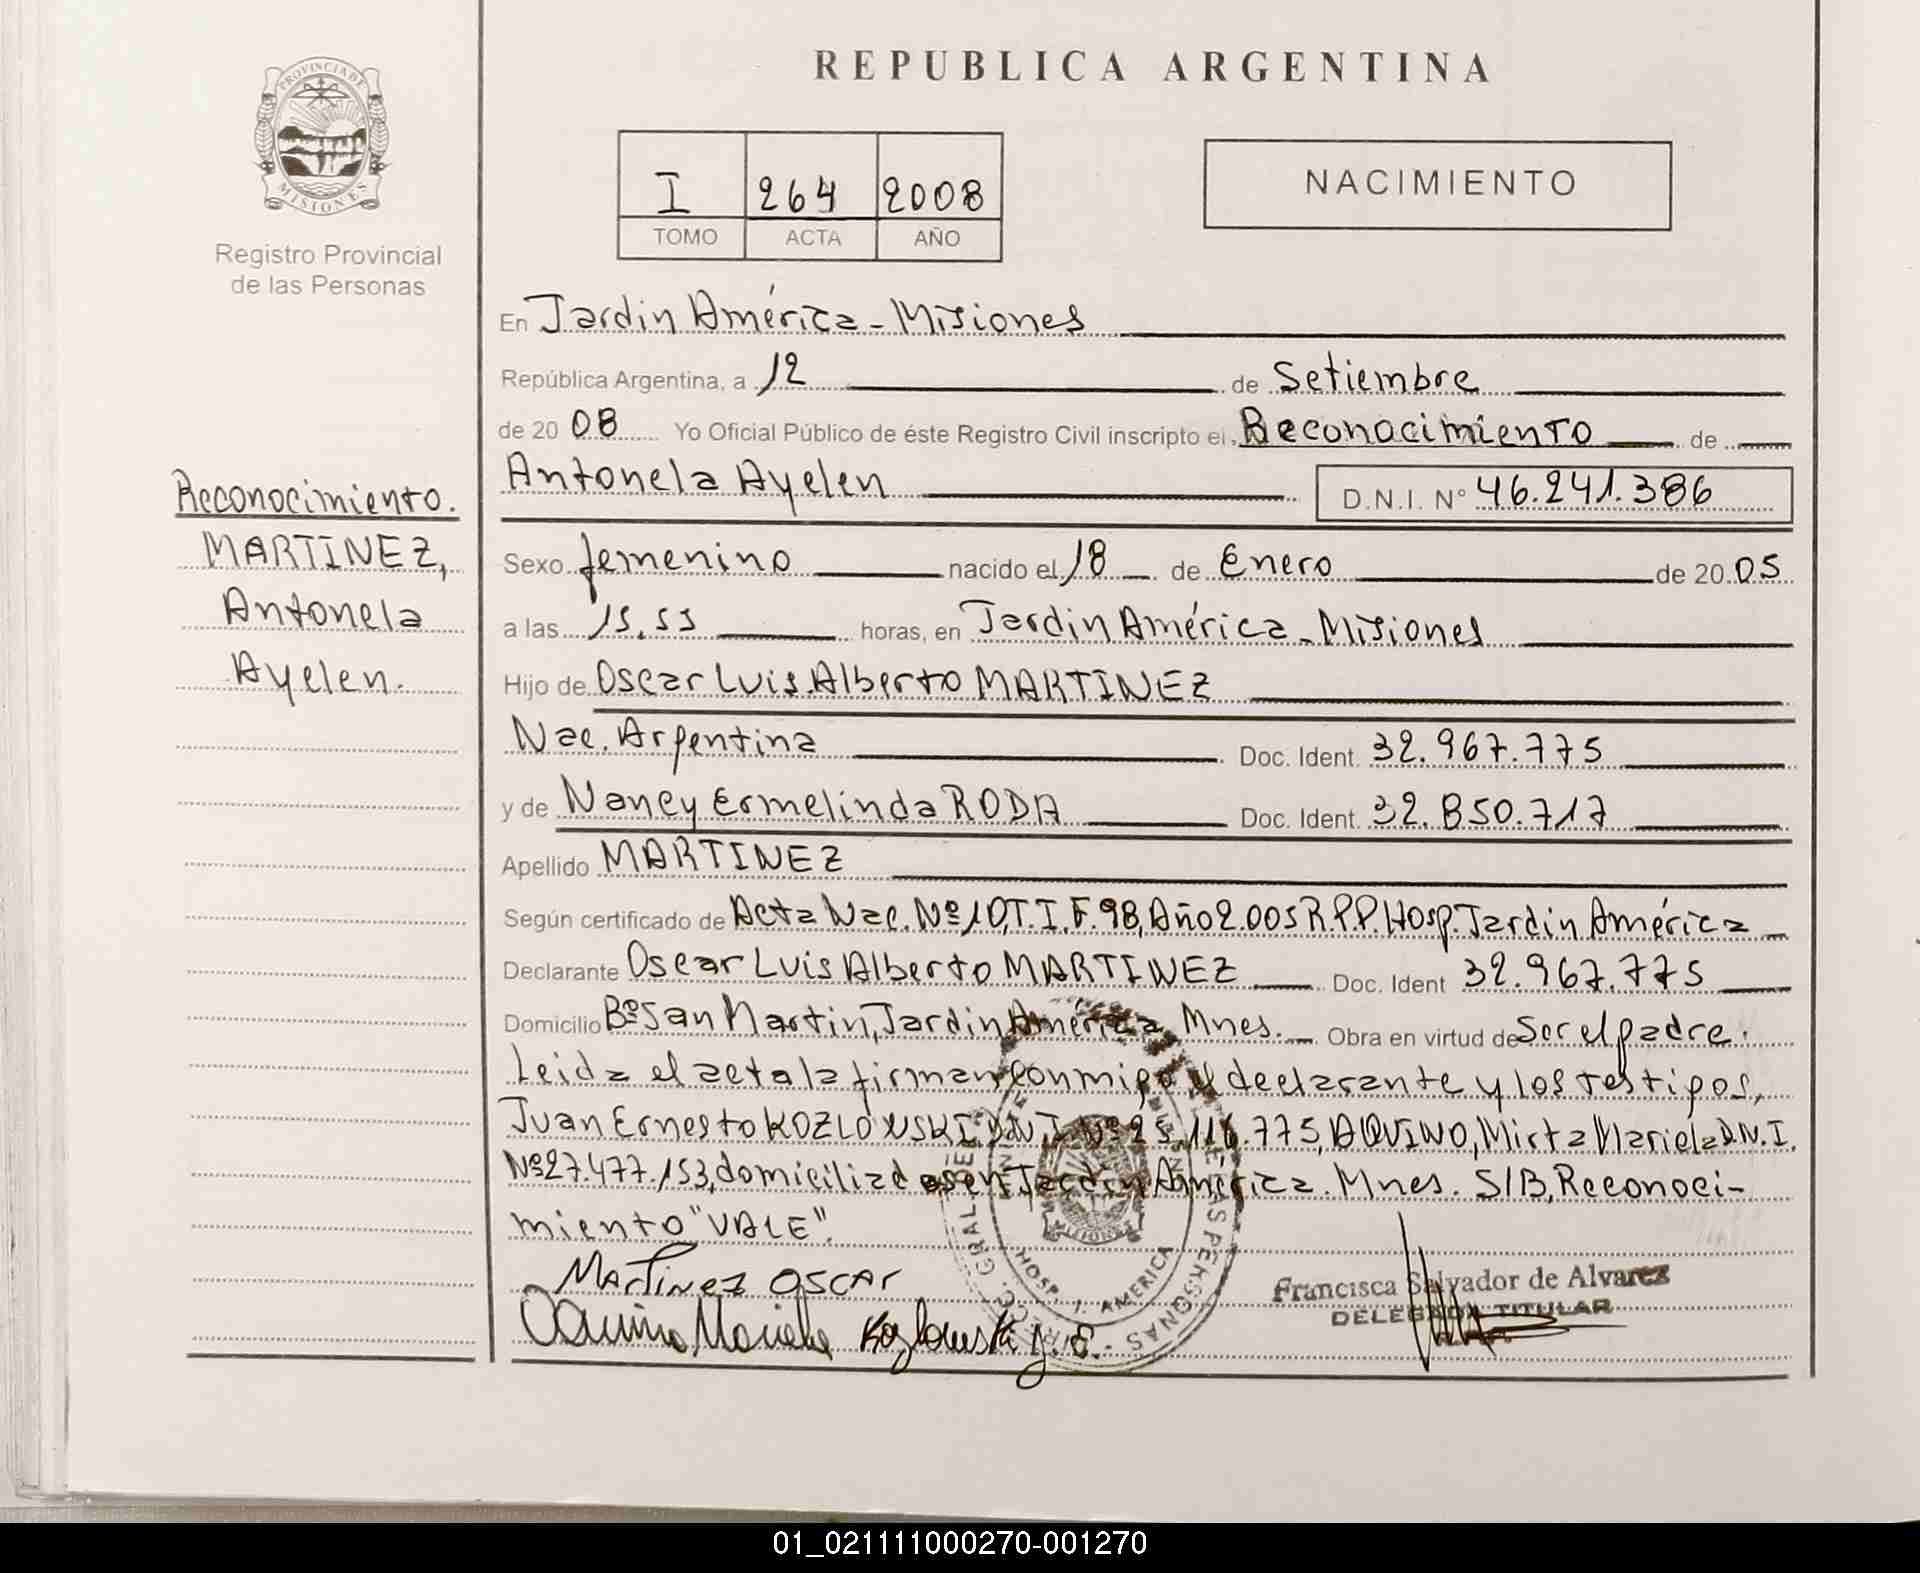 REPUBLICA ARGENTINA
PROVINCIA DE
MISIONES
Registro Provincial
de las Personas
I 264 2008
TOMO ACTA AÑO
NACIMIENTO
En Jardin América - Misiones
República Argentina, a 12 de Setiembre
de 2008 Yo Oficial Público de éste Registro Civil inscripto el Reconocimiento de
Antonela Ayelen D.N.I. Nº 46.241.386
Reconocimiento.
MARTINEZ,
Antonela
Ayelen.
Sexo femenino nacido el 18 de Enero de 2005
a las 15.55 horas, en Jardin América - Misiones
Hijo de Oscar Luis Alberto MARTINEZ
Nac. Argentina Doc. Ident. 32.967.775
y de Nancy Ermelinda RODA Doc. Ident. 32.850.717
Apellido MARTINEZ
Según certificado de Acta Nac. Nº 10, T.I, F. 98, Año 2.005 R.P.P. Hosp. Jardin América
Declarante Oscar Luis Alberto MARTINEZ Doc. Ident 32.967.775
Domicilio Bº San Martin, Jardin América Mnes. Obra en virtud de Ser el padre.
Leida el acta la firman conmigo el declarante y los testigos,
Juan Ernesto KOZLOWSKI D.N.I. Nº 25.116.775, AQUINO, Mirta Mariela D.N.I.
Nº 27.477.153, domiciliados en Jardin América. Mnes. S/B, Reconoci-
miento "VALE".
Martinez Oscar
Aquino Mariela Kozlowski J. E.
HOSP. J. AMERICA
Francisca Salvador de Alvarez
DELEGADA TITULAR
01_021111000270-001270